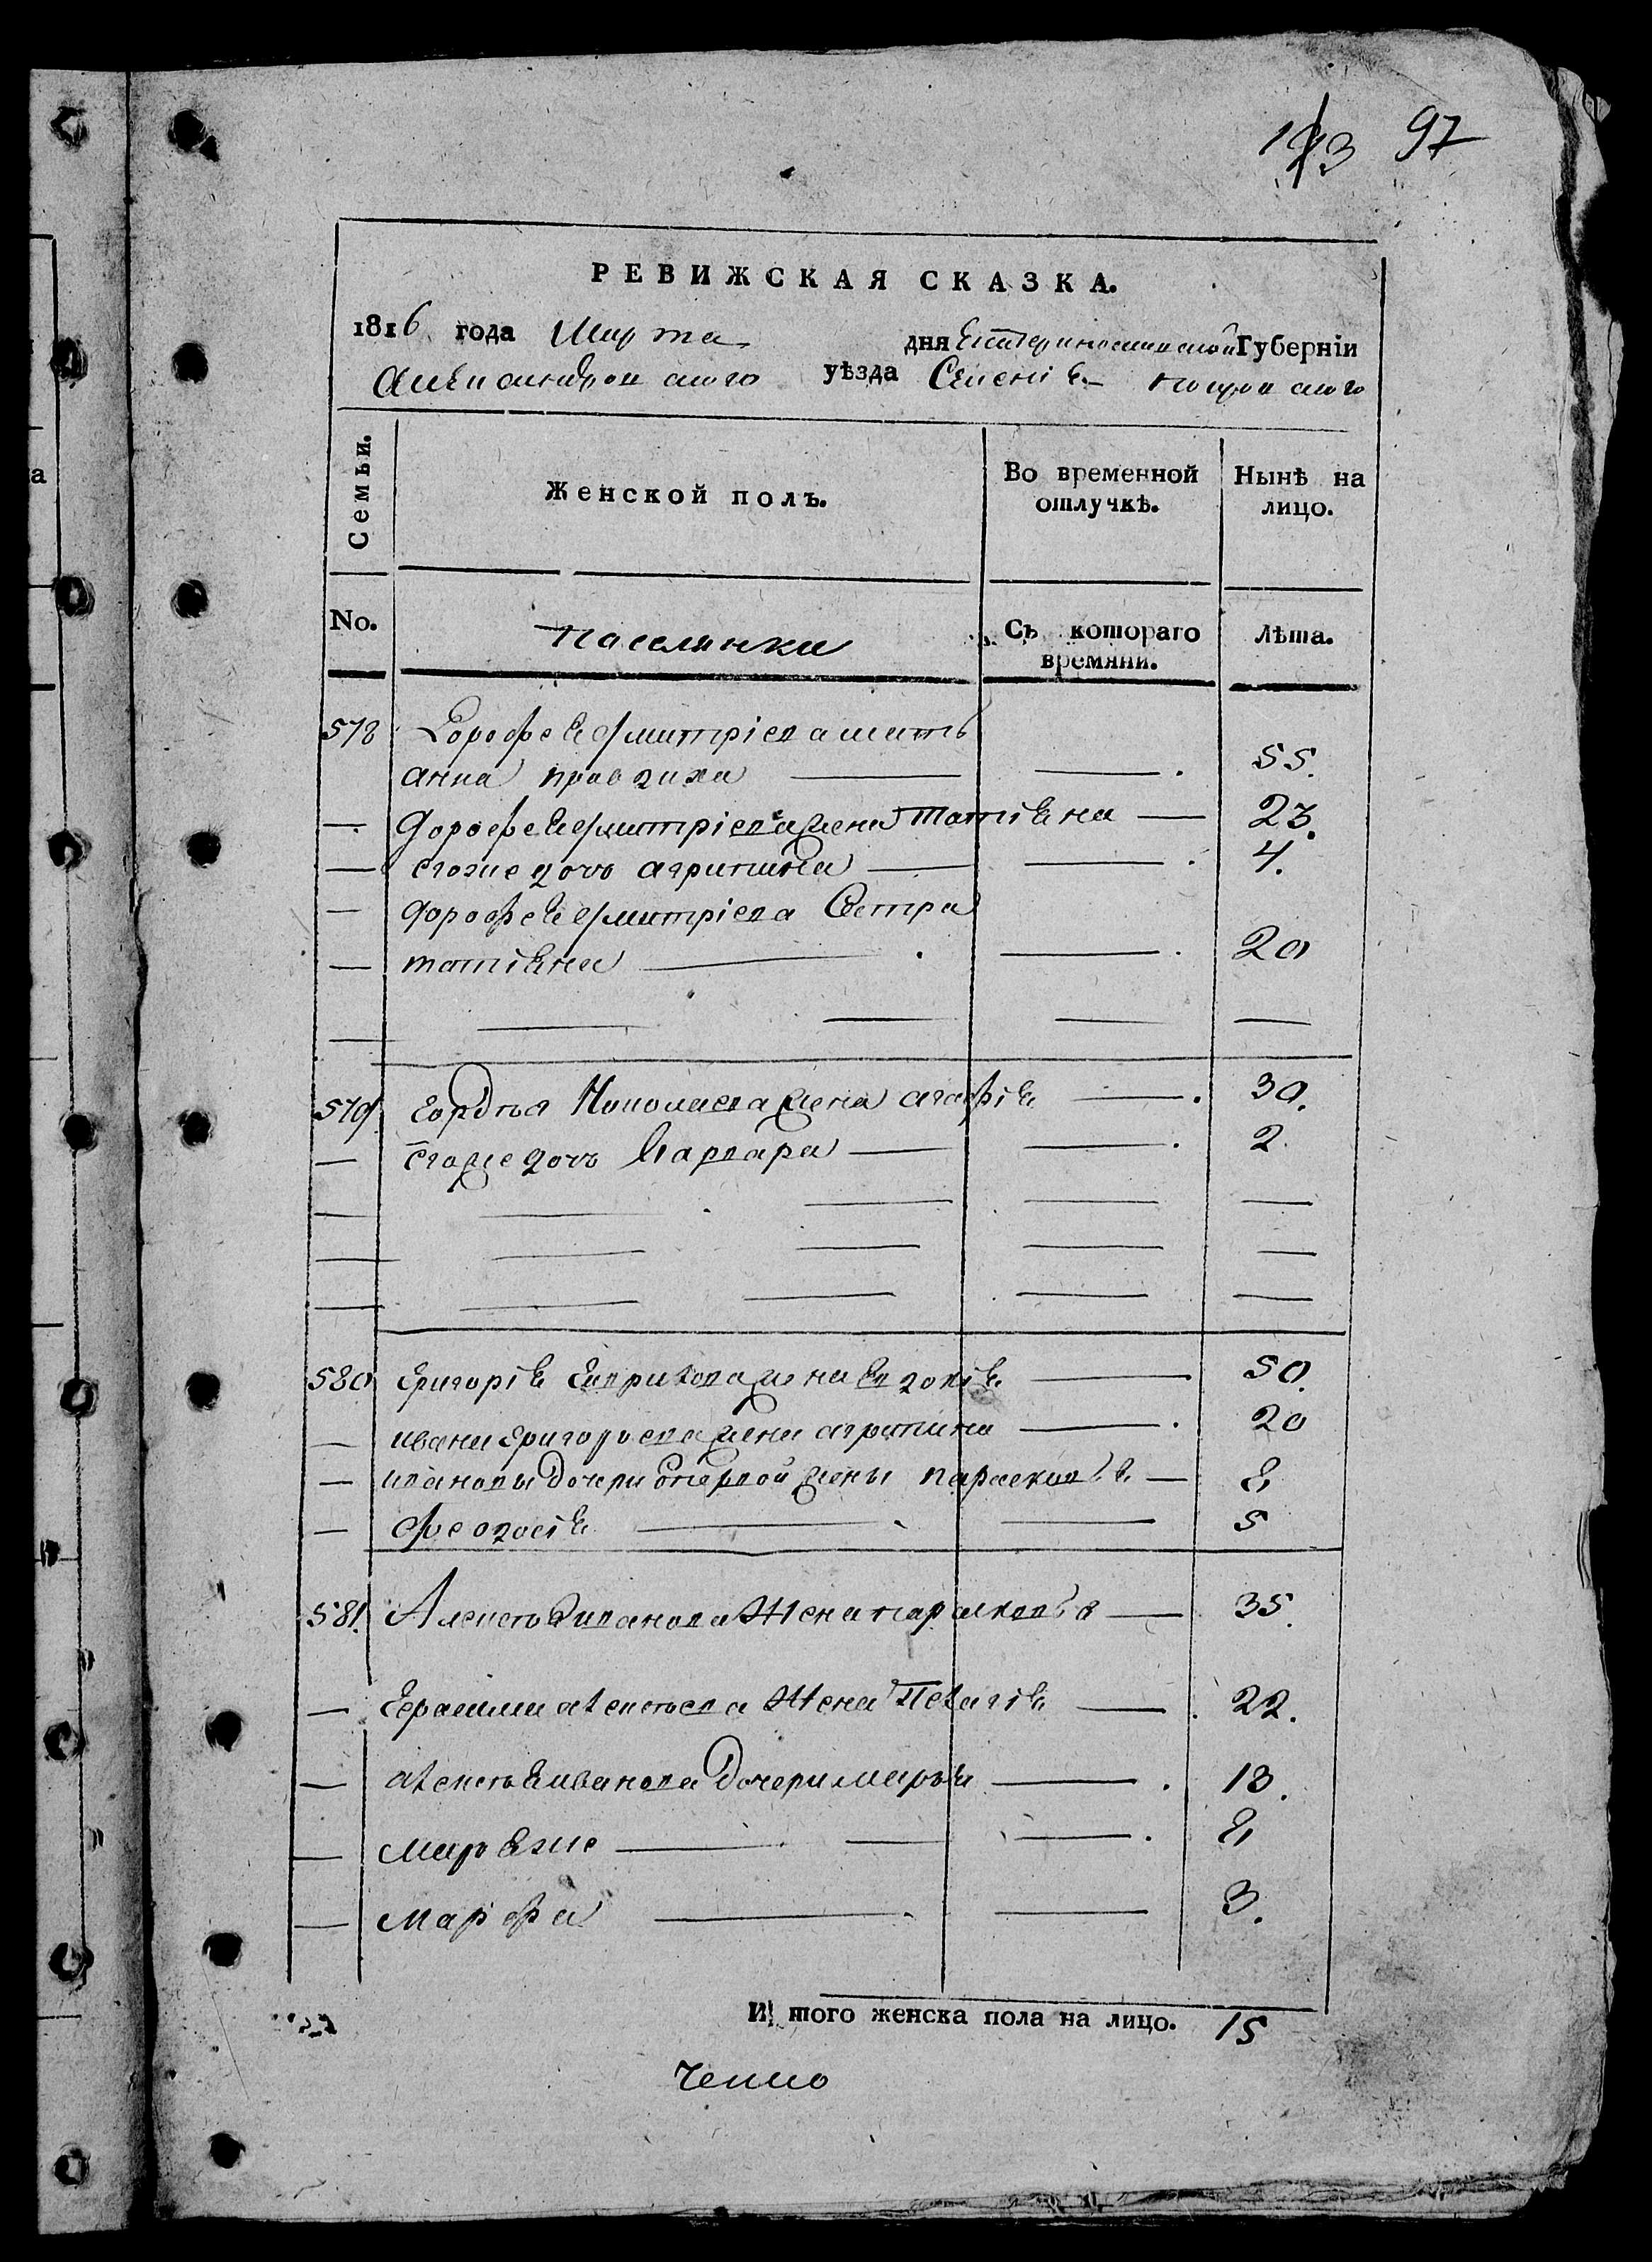 123 97
РЕВИЖСКАЯ СКАЗКА.
1816 года Марта дня Екатеринославской Губерніи
Александровскаго уѣзда Селенія Покровскаго
Семьи.
Женской полъ.
Во временной отлучкѣ.
Нынѣ на лицо.
No.
Паселянки
Съ котораго времяни.
Лѣта.
578 Дорофея Дмитріева мать
анна 55.
— Дорофея Дмитріева жена татіяна — 23.
— егоже дочь агрипина — 4.
— Дорофея Дмитріева Сестра
— татіяна — 20
579 Гордѣя жена агафія — 30.
— Егоже дочь Варвара — 2.
580 Григорія жена Евдокія — 50.
— ивана Григорьева жена агрипина — 20
— ивановы Дочери отпервой жены парасковья — 8
— Феодосія — 5
581. Алексѣя иванова Жена парасковья — 35.
— Герасима алексѣева Жена Пелагія — 22.
— алексѣя иванова Дочери марья — 13.
— марья же — 8
— марфа — 3.
И того женска пола на лицо. 15